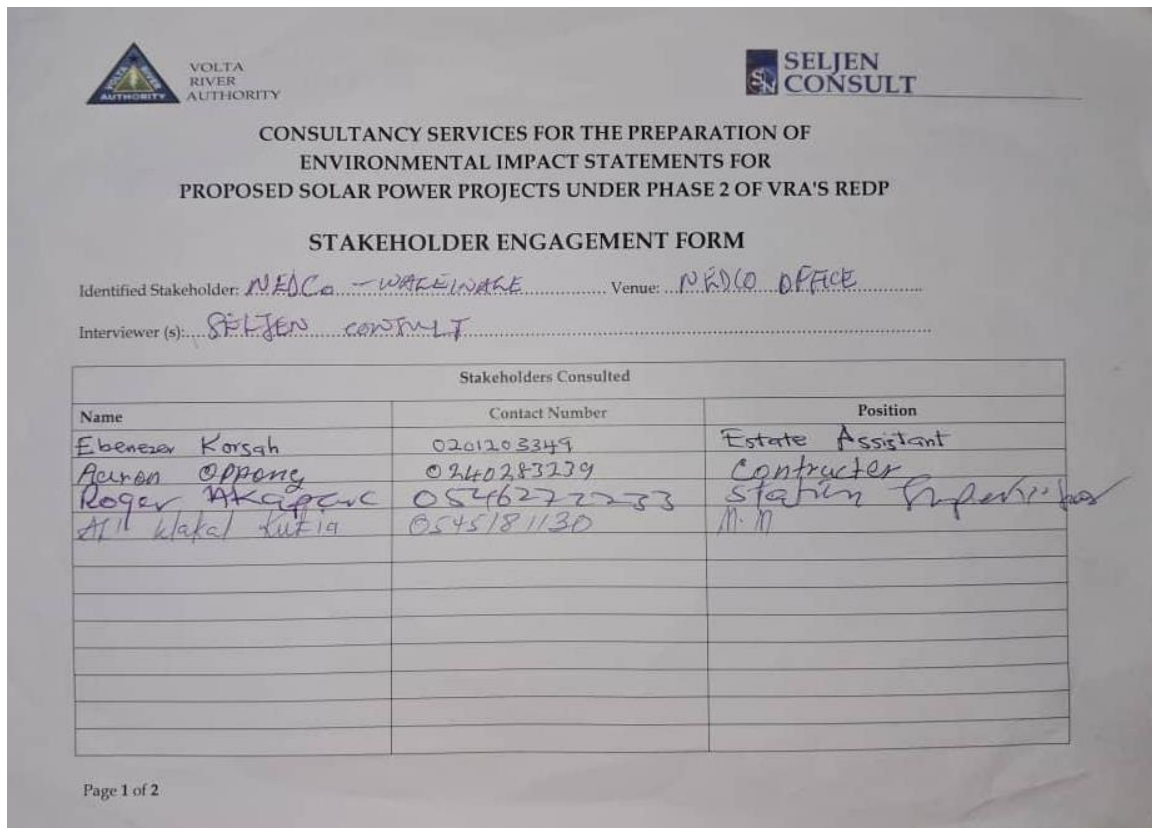 VOLTA
RIVER
AUTHORITY
VOLTA RIVER
AUTHORITY
SN
SELJEN
CONSULT
CONSULTANCY SERVICES FOR THE PREPARATION OF
ENVIRONMENTAL IMPACT STATEMENTS FOR
PROPOSED SOLAR POWER PROJECTS UNDER PHASE 2 OF VRA'S REDP
STAKEHOLDER ENGAGEMENT FORM
Identified Stakeholder: NEDCo - WALEWALE Venue: NEDCO OFFICE
Interviewer (s): SELJEN CONSULT
Stakeholders Consulted
Name Contact Number Position
Ebenezer Korsah 0201203349 Estate Assistant
Aaron Oppong 0240283239 Contracter
Roger 0546222233 Station
0545181130 M.M
Page 1 of 2